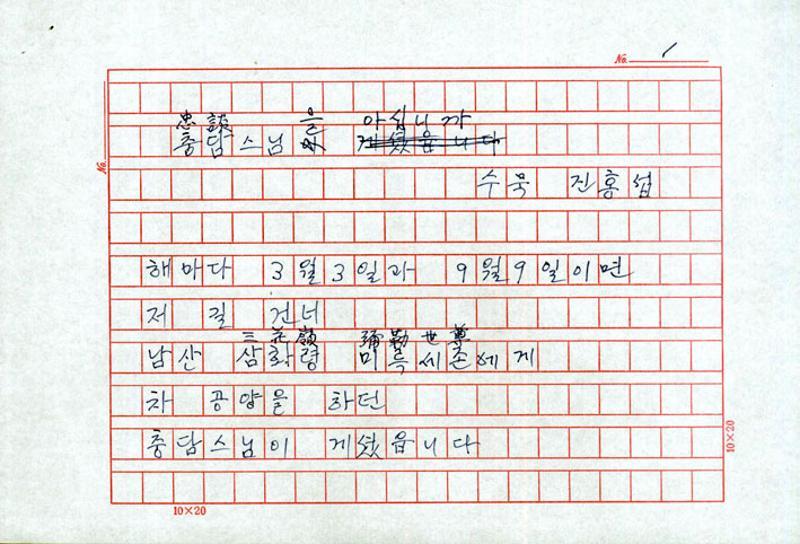 No. 1
忠談 을 아십니까
충담스님 게셨읍니다
No.
수묵 진홍섭
해마다 3월3일과 9월9일이면
저 길 건너
三花嶺 彌勒世尊
남산 삼화령 미륵세존에게
차 공양을 하던
충담스님이 게셨읍니다
10×20
10×20